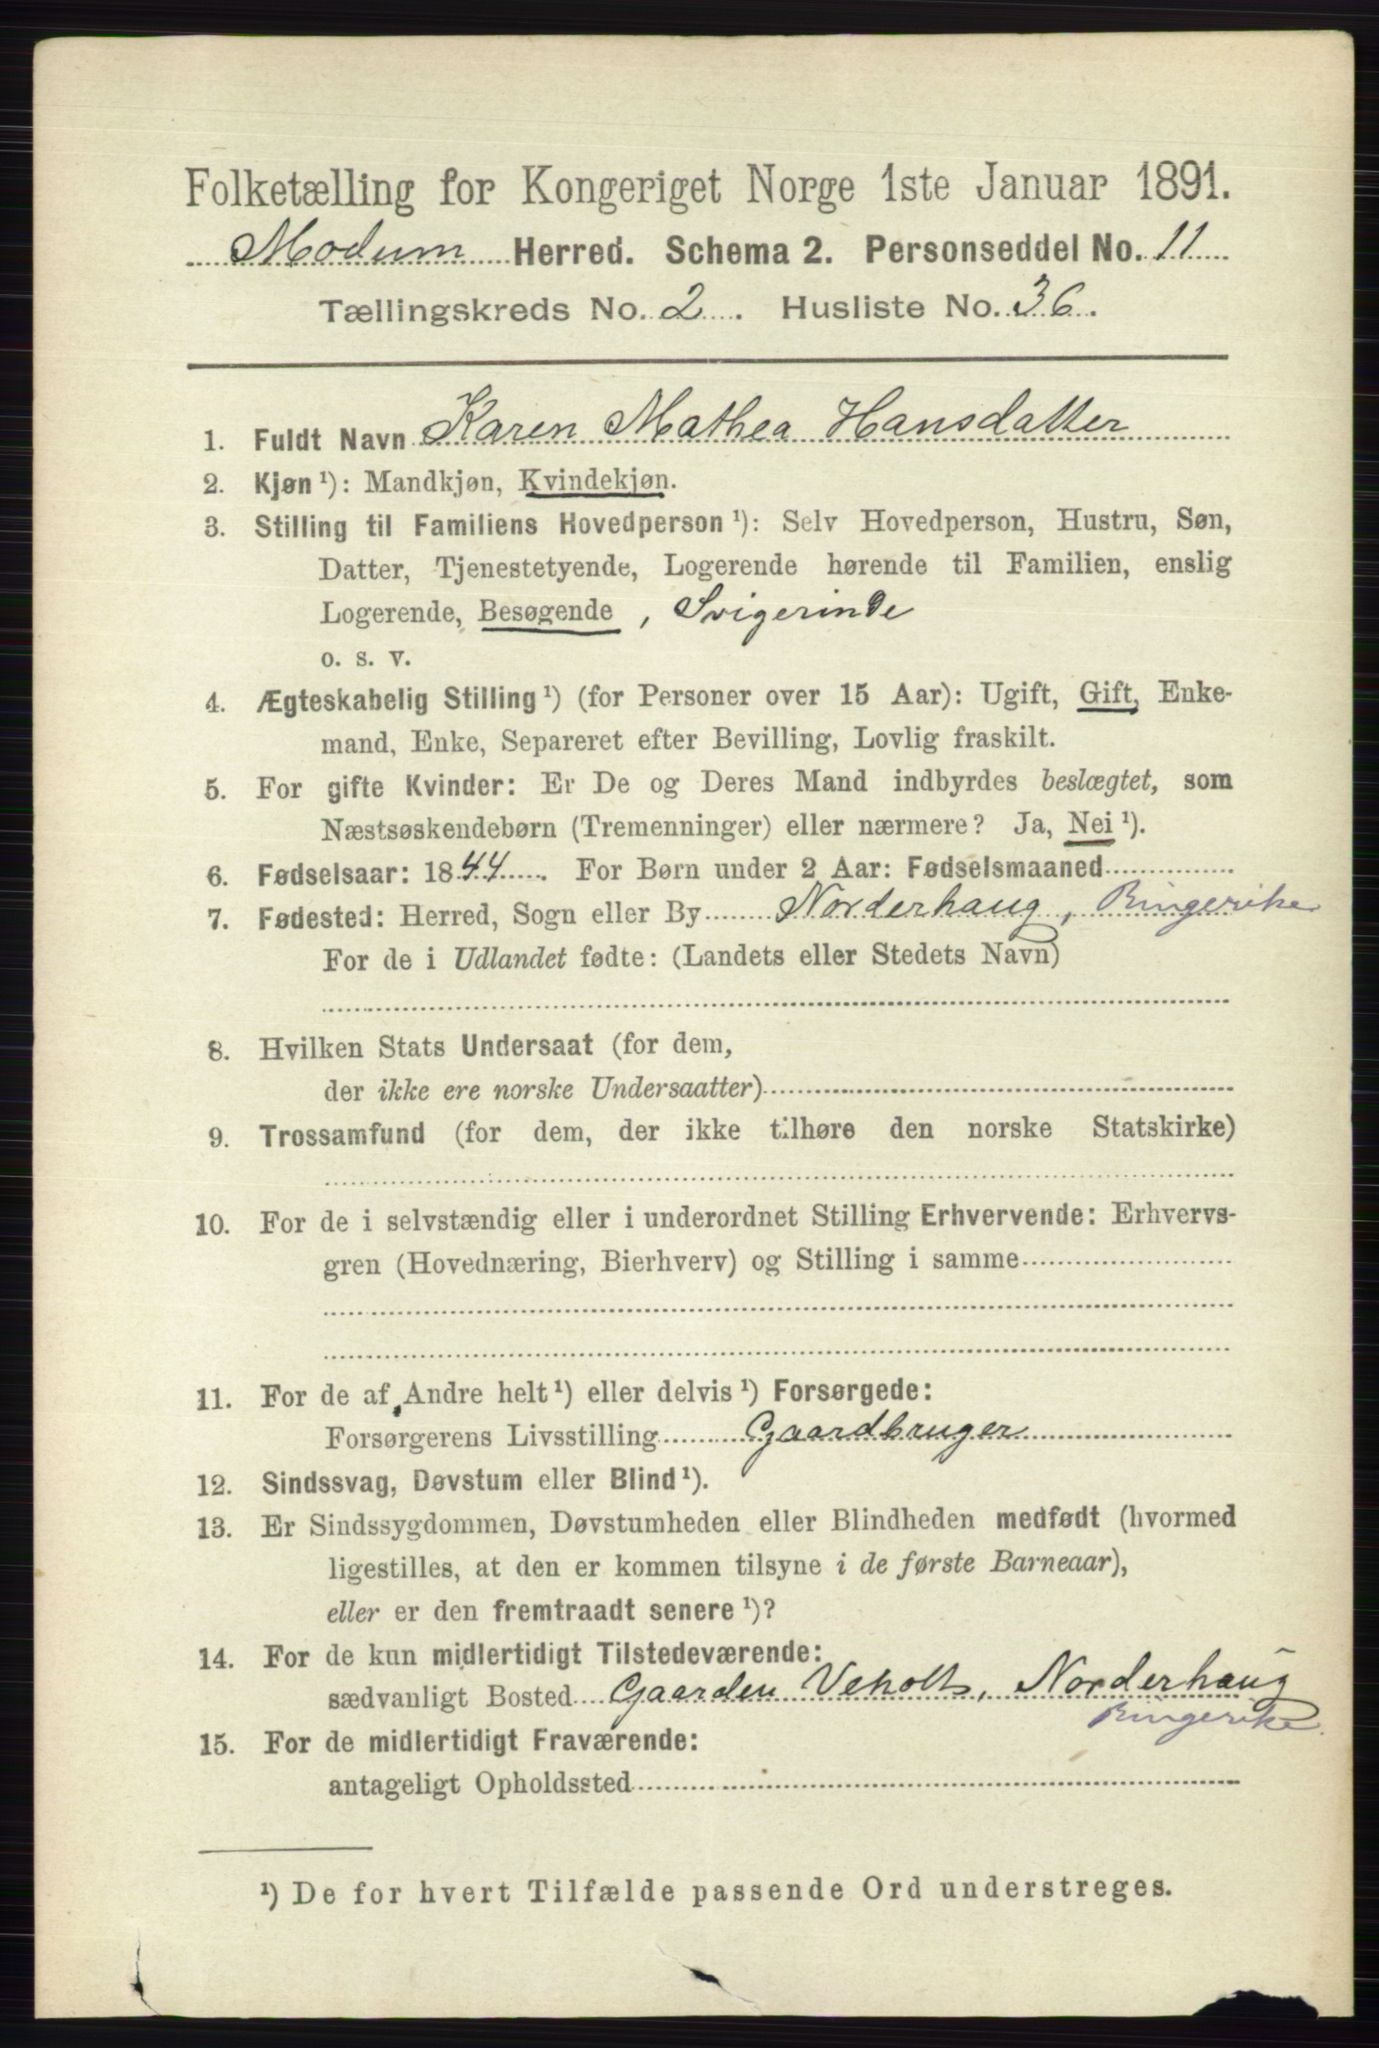 Folketælling for Kongeriget Norge 1ste Januar 1891.
Modum Herred. Schema 2. Personseddel No. 11
Tællingskreds No. 2. Husliste No. 36.
1. Fuldt Navn Karen Mathea Hansdatter
2. Kjøn ¹): Mandkjøn, Kvindekjøn.
3. Stilling til Familiens Hovedperson ¹): Selv Hovedperson, Hustru, Søn,
Datter, Tjenestetyende, Logerende hørende til Familien, enslig
Logerende, Besøgende, Svigerinde
o. s. v.
4. Ægteskabelig Stilling ¹) (for Personer over 15 Aar): Ugift, Gift, Enke-
mand, Enke, Separeret efter Bevilling, Lovlig fraskilt.
5. For gifte Kvinder: Er De og Deres Mand indbyrdes beslægtet, som
Næstsøskendebørn (Tremenninger) eller nærmere? Ja, Nei ¹).
6. Fødselsaar: 1844. For Børn under 2 Aar: Fødselsmaaned
7. Fødested: Herred, Sogn eller By Norderhaug, Ringerike
For de i Udlandet fødte: (Landets eller Stedets Navn)
8. Hvilken Stats Undersaat (for dem,
der ikke ere norske Undersaatter)
9. Trossamfund (for dem, der ikke tilhøre den norske Statskirke)
10. For de i selvstændig eller i underordnet Stilling Erhvervende: Erhvervs-
gren (Hovednæring, Bierhverv) og Stilling i samme
11. For de af Andre helt ¹) eller delvis ¹) Forsørgede:
Forsørgerens Livsstilling Gaardbruger
12. Sindssvag, Døvstum eller Blind ¹).
13. Er Sindssygdommen, Døvstumheden eller Blindheden medfødt (hvormed
ligestilles, at den er kommen tilsyne i de første Barneaar),
eller er den fremtraadt senere ¹)?
14. For de kun midlertidigt Tilstedeværende:
sædvanligt Bosted Gaarden Veholt, Norderhaug
Ringerike.
15. For de midlertidigt Fraværende:
antageligt Opholdssted
¹) De for hvert Tilfælde passende Ord understreges.